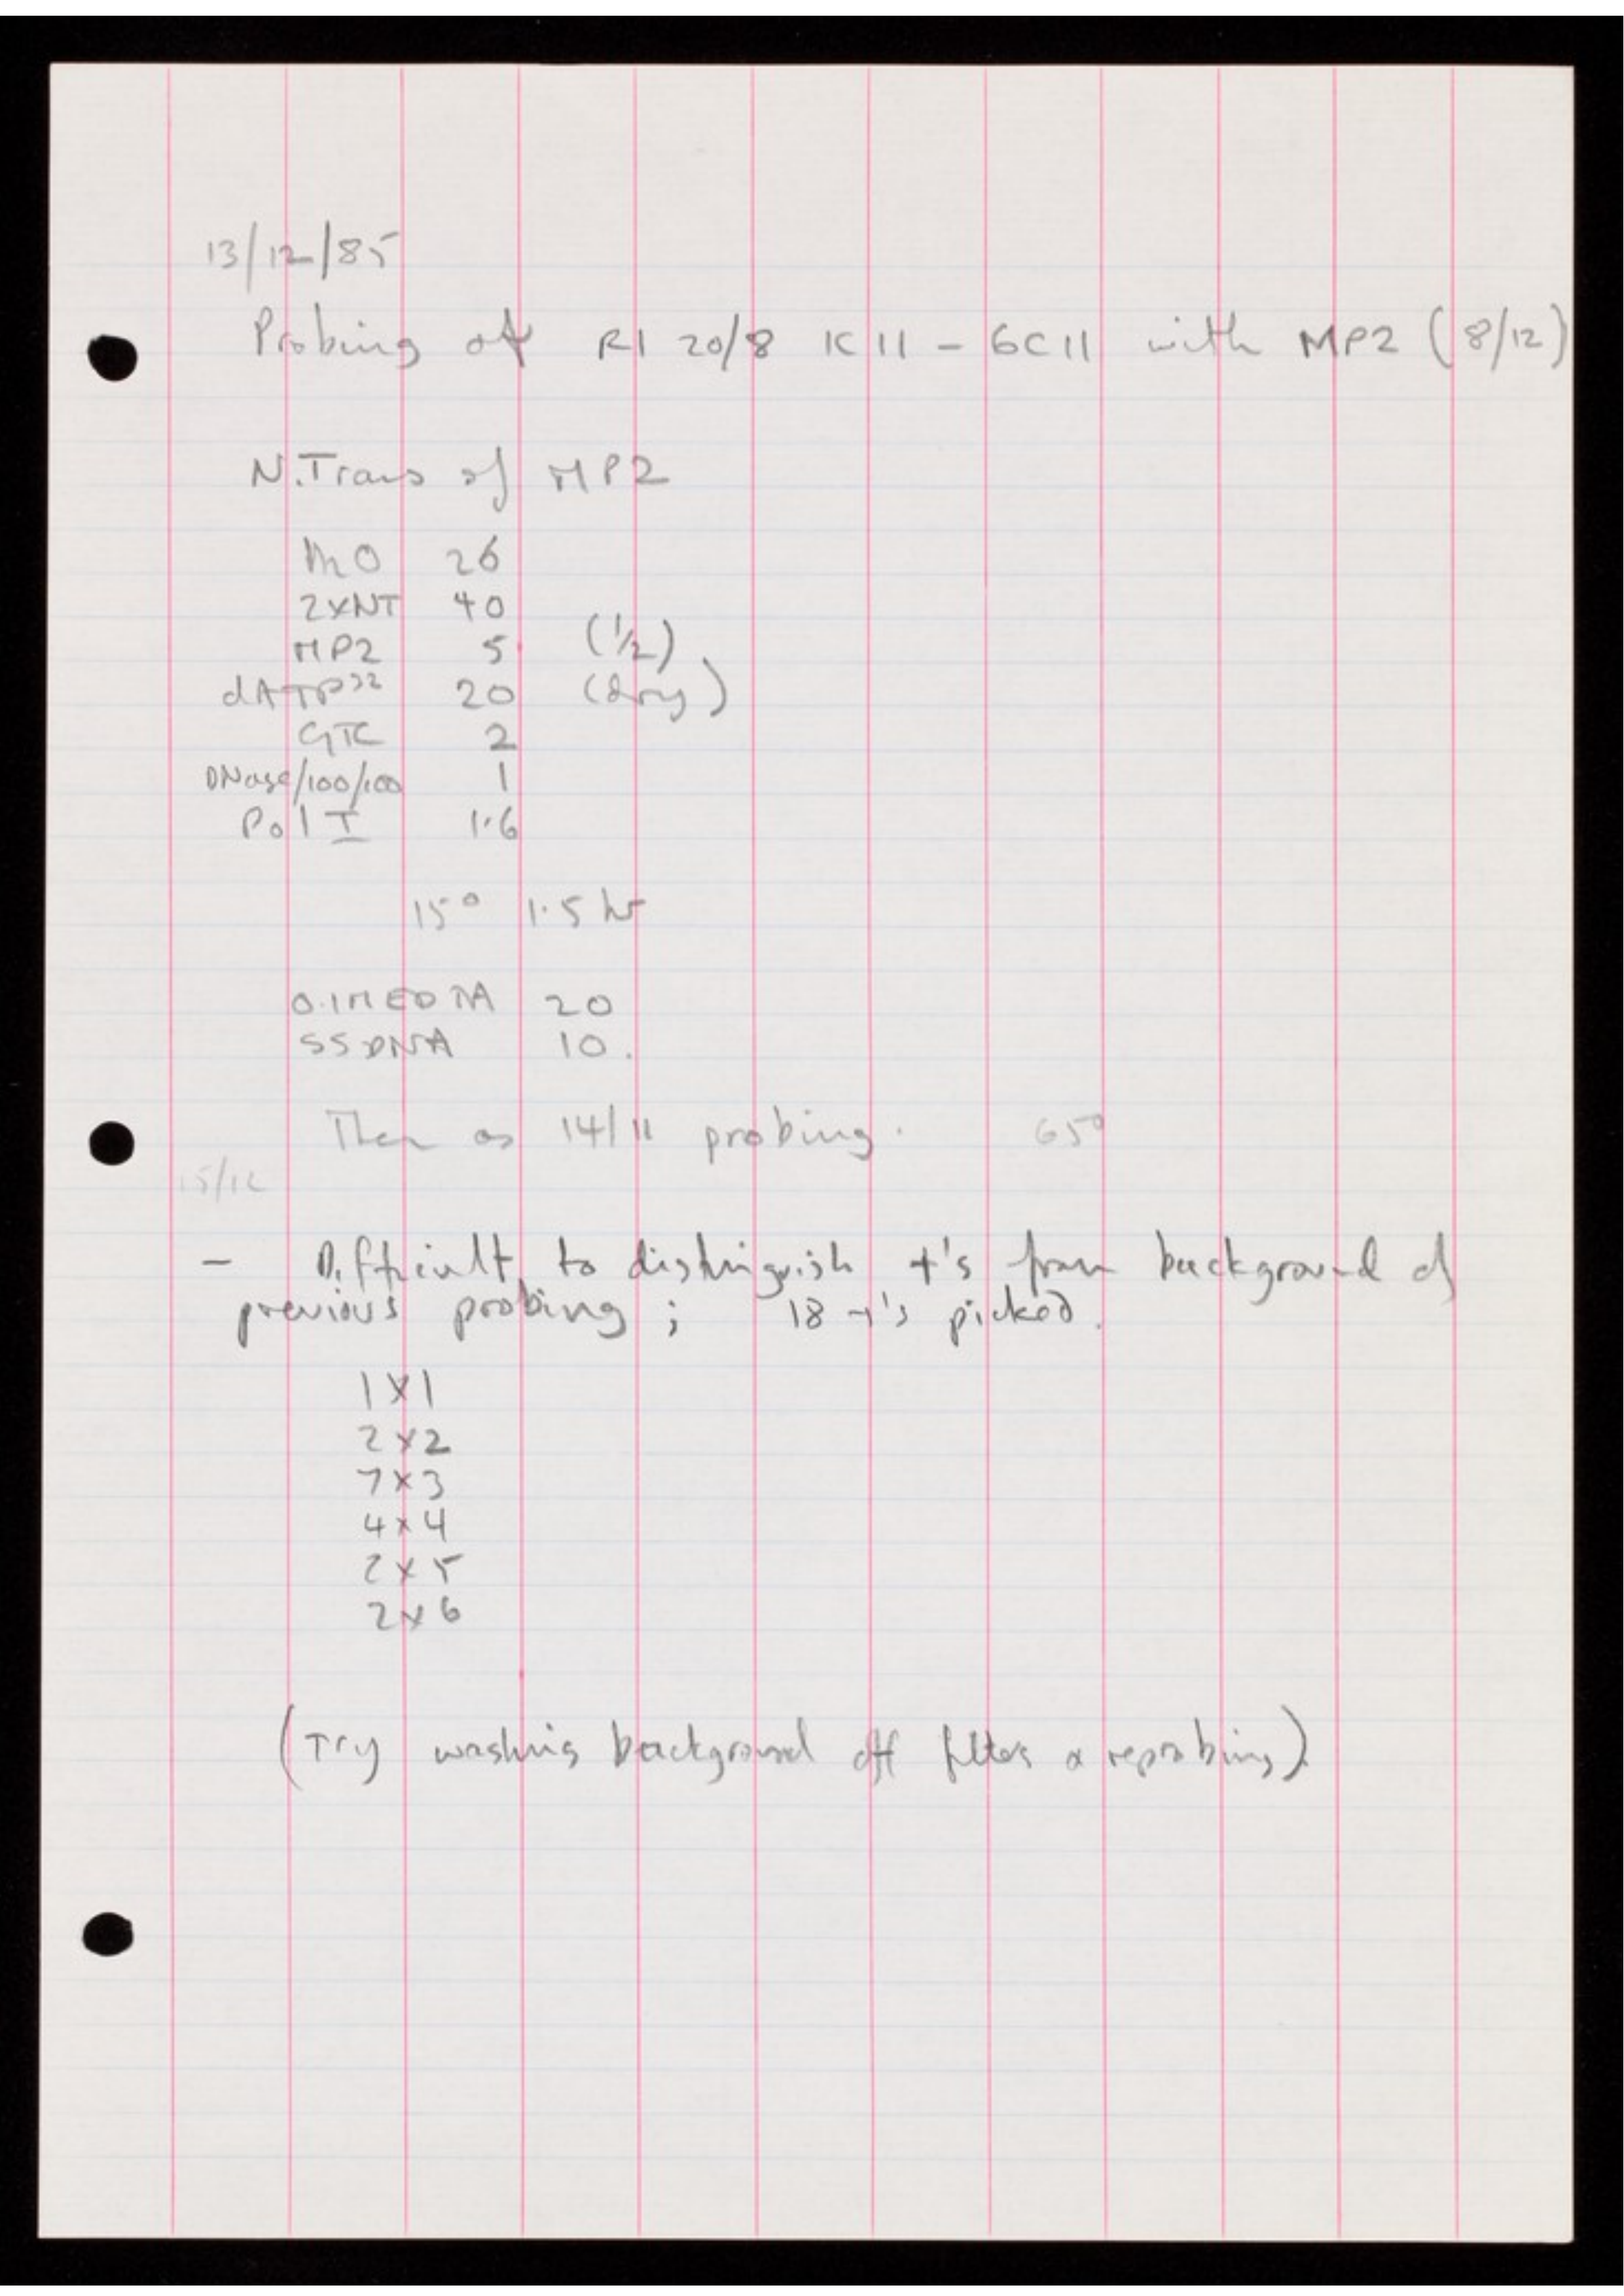 13/12/85
Probing of RI 20/8 1C11 - 6C11 with MP2 (8/12)
N.Trans of MP2
H2O 26
2xNT 40
MP2 5 (1/2)
dATP32 20 (dry)
GTC 2
DNase/100/100 1
Pol I 1.6
15° 1.5 hr
0.1M EDTA 20
SSDNA 10.
Then as 14/11 probing. 65°
15/12
- Difficult to distinguish +'s from background of
previous probing; 18 +'s picked.
1x1
2x2
7x3
4x4
2x5
2x6
(Try washing background off filters & reprobing)